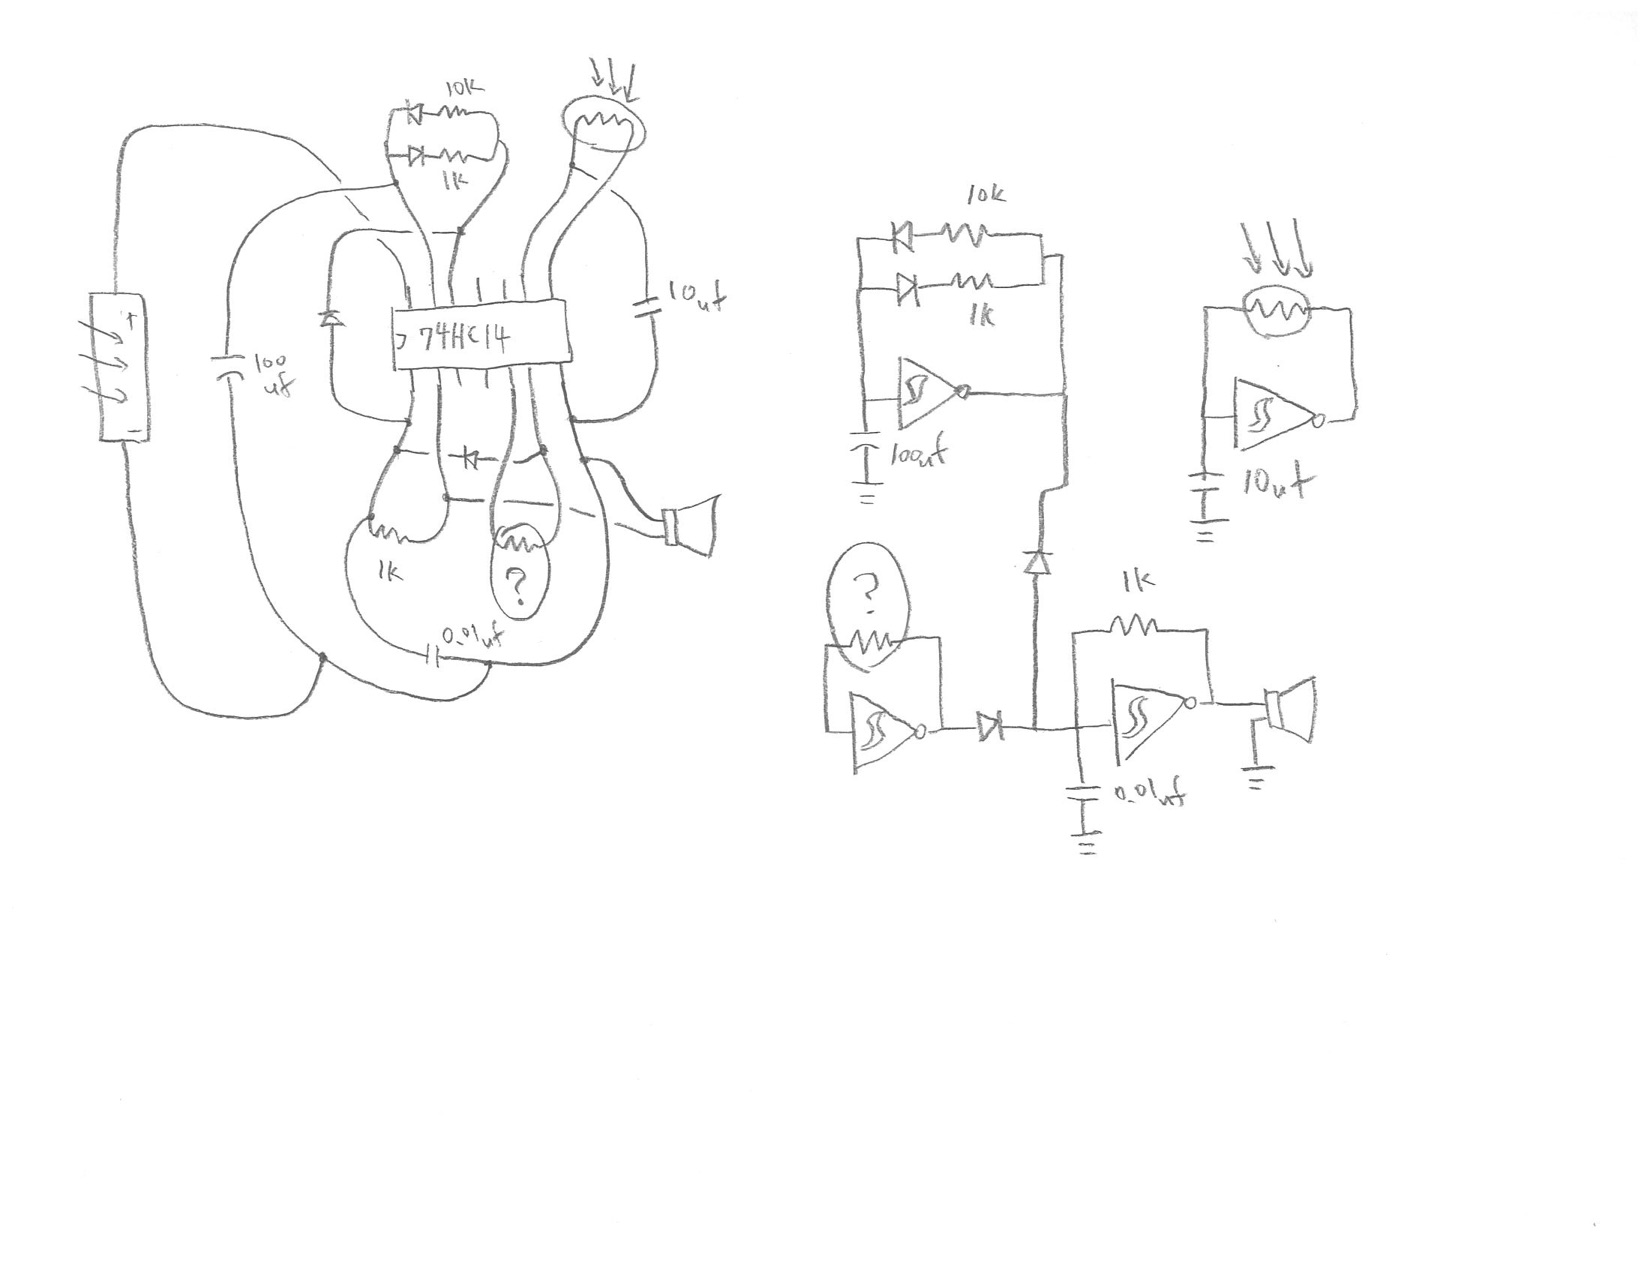 10K
1K
+
-
100
uf
74HC14
10uf
1K
?
0.01uf
10k
1k
100uf
10uf
?
1K
0.01uf